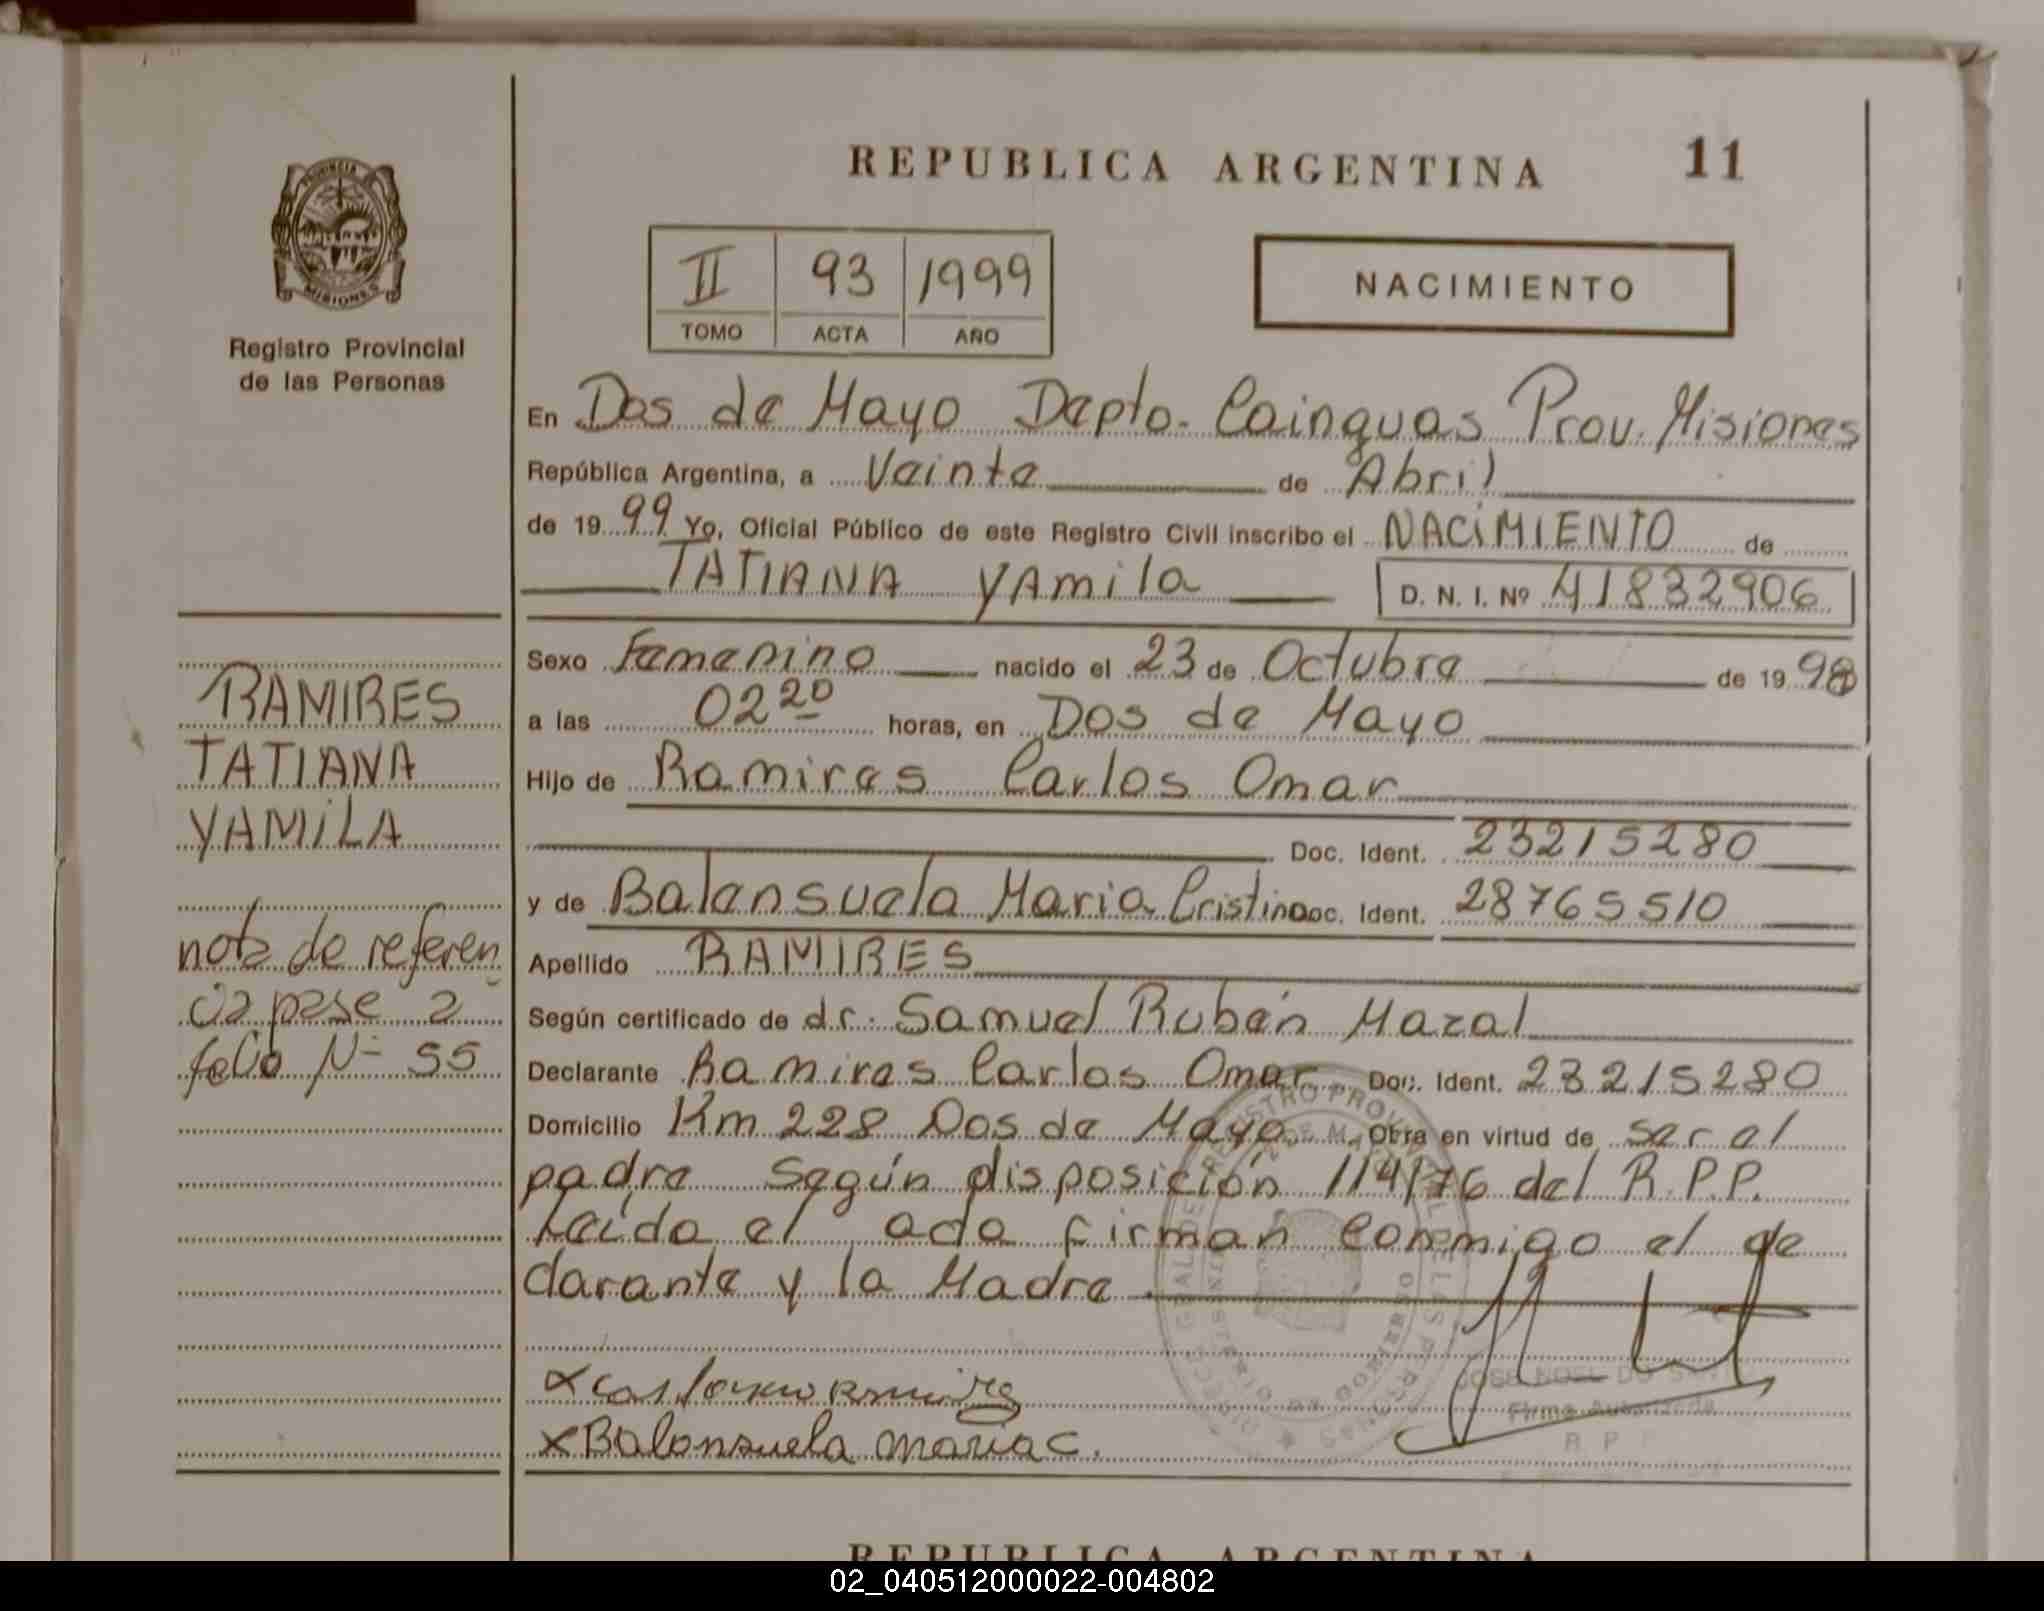 REPUBLICA ARGENTINA 11
PROVINCIA
MISIONES
Registro Provincial
de las Personas
II 93 1999
TOMO ACTA AÑO
NACIMIENTO
En Dos de Mayo Depto. Cainguas Prov. Misiones
República Argentina, a Veinte de Abril
de 19 99 Yo, Oficial Público de este Registro Civil inscribo el NACIMIENTO de
TATIANA YAmila D. N. I. Nº 41832906
Sexo Femenino nacido el 23 de Octubre de 19 98
a las 02 20 horas, en Dos de Mayo
Hijo de Ramires Carlos Omar
Doc. Ident. 23215280
y de Balensuela Maria Cristina Doc. Ident. 28765510
Apellido RAMIRES
Según certificado de dr. Samuel Rubén Mazal
Declarante Ramires Carlos Omar Doc. Ident. 23215280
Domicilio Km 228 Dos de Mayo Obra en virtud de ser el
padre Según disposición 114/76 del R.P.P.
Leída el acta firman Conmigo el de
clarante y la Madre
RAMIRES
TATIANA
YAMILA
nota de referen
cia pase a
folio Nº 55
x Balensuela maria c.
JOSE NOEL DO
Firma Autorizada
R P
REPUBLICA ARGENTINA
02_040512000022-004802